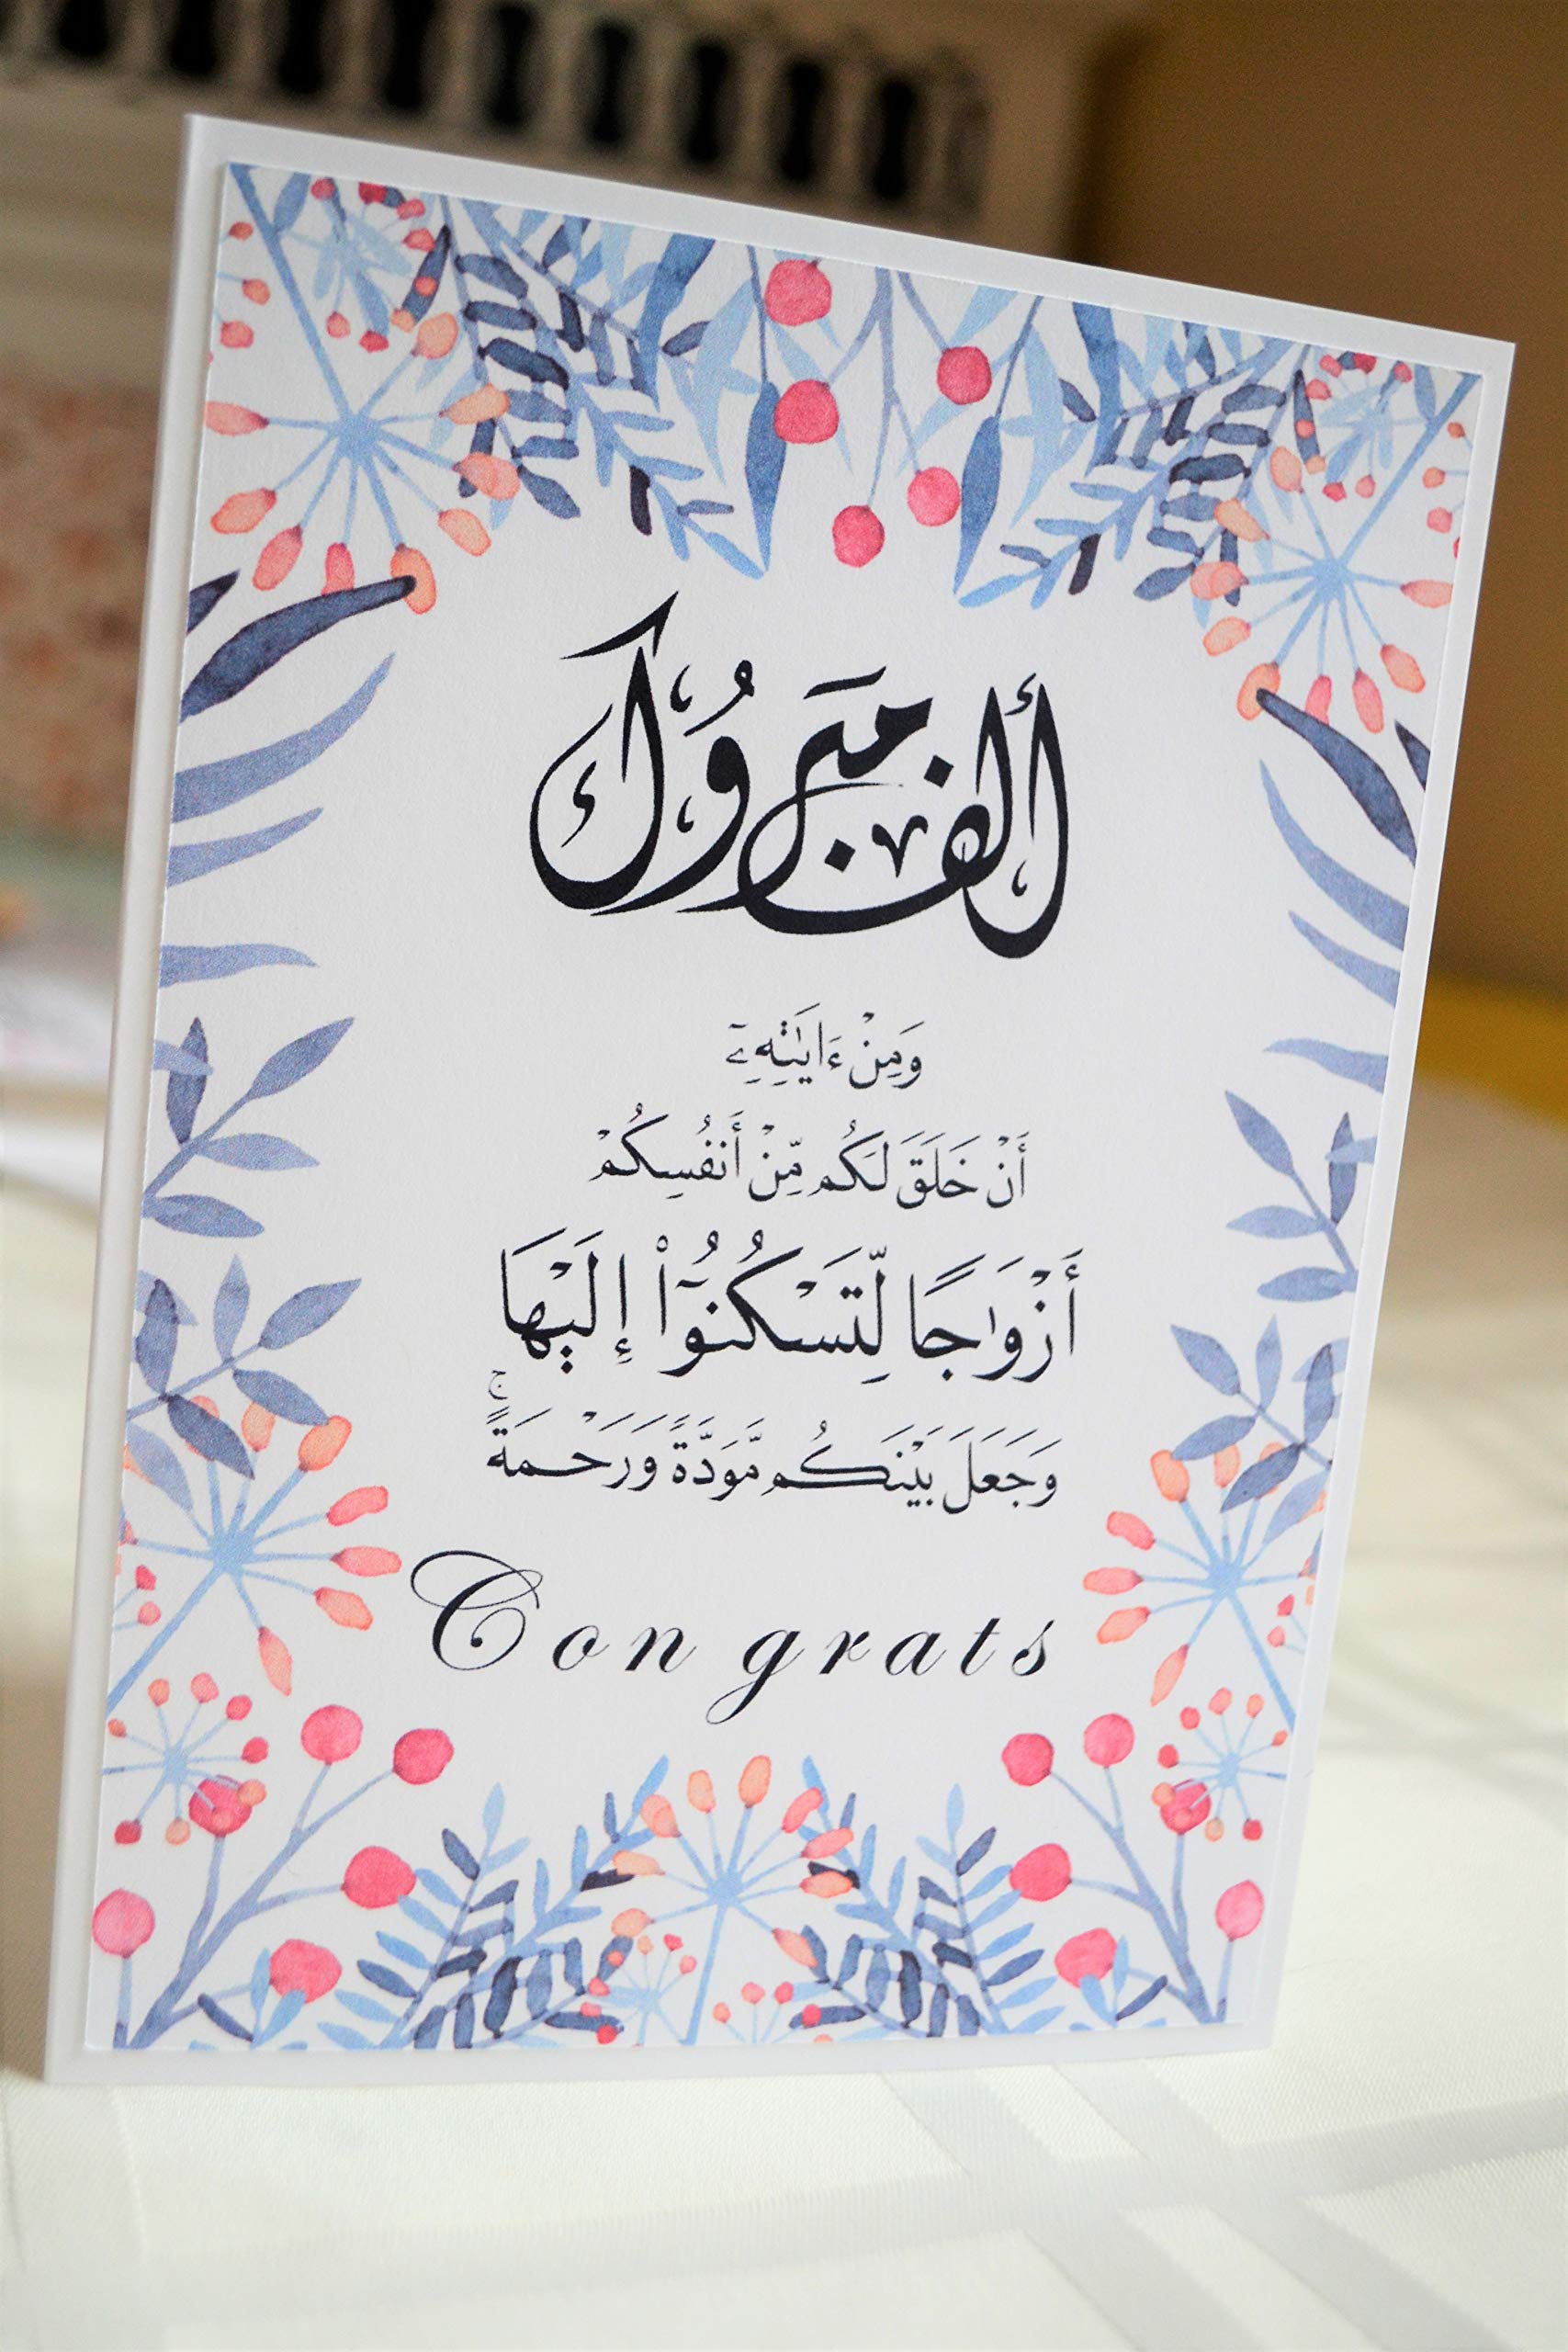 ألف مبروك
وَمِنْ ءَايَٰتِهِۦٓ
أَنْ خَلَقَ لَكُم مِّنْ أَنفُسِكُمْ
أَزْوَٰجًا لِّتَسْكُنُوٓا۟ إِلَيْهَا
وَجَعَلَ بَيْنَكُم مَّوَدَّةً وَرَحْمَةً ۚ
Congrats